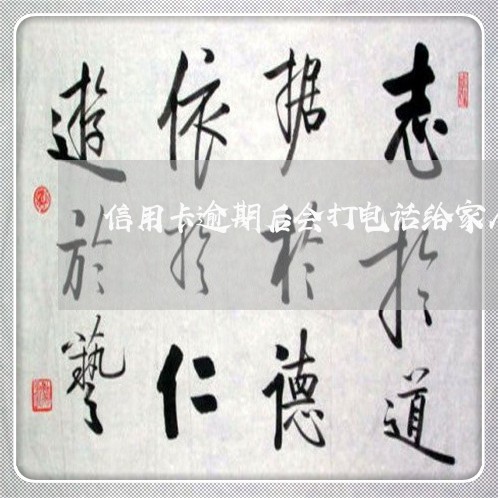 志於道
据於德
依於仁
遊於藝
信用卡逾期后会打电话给家